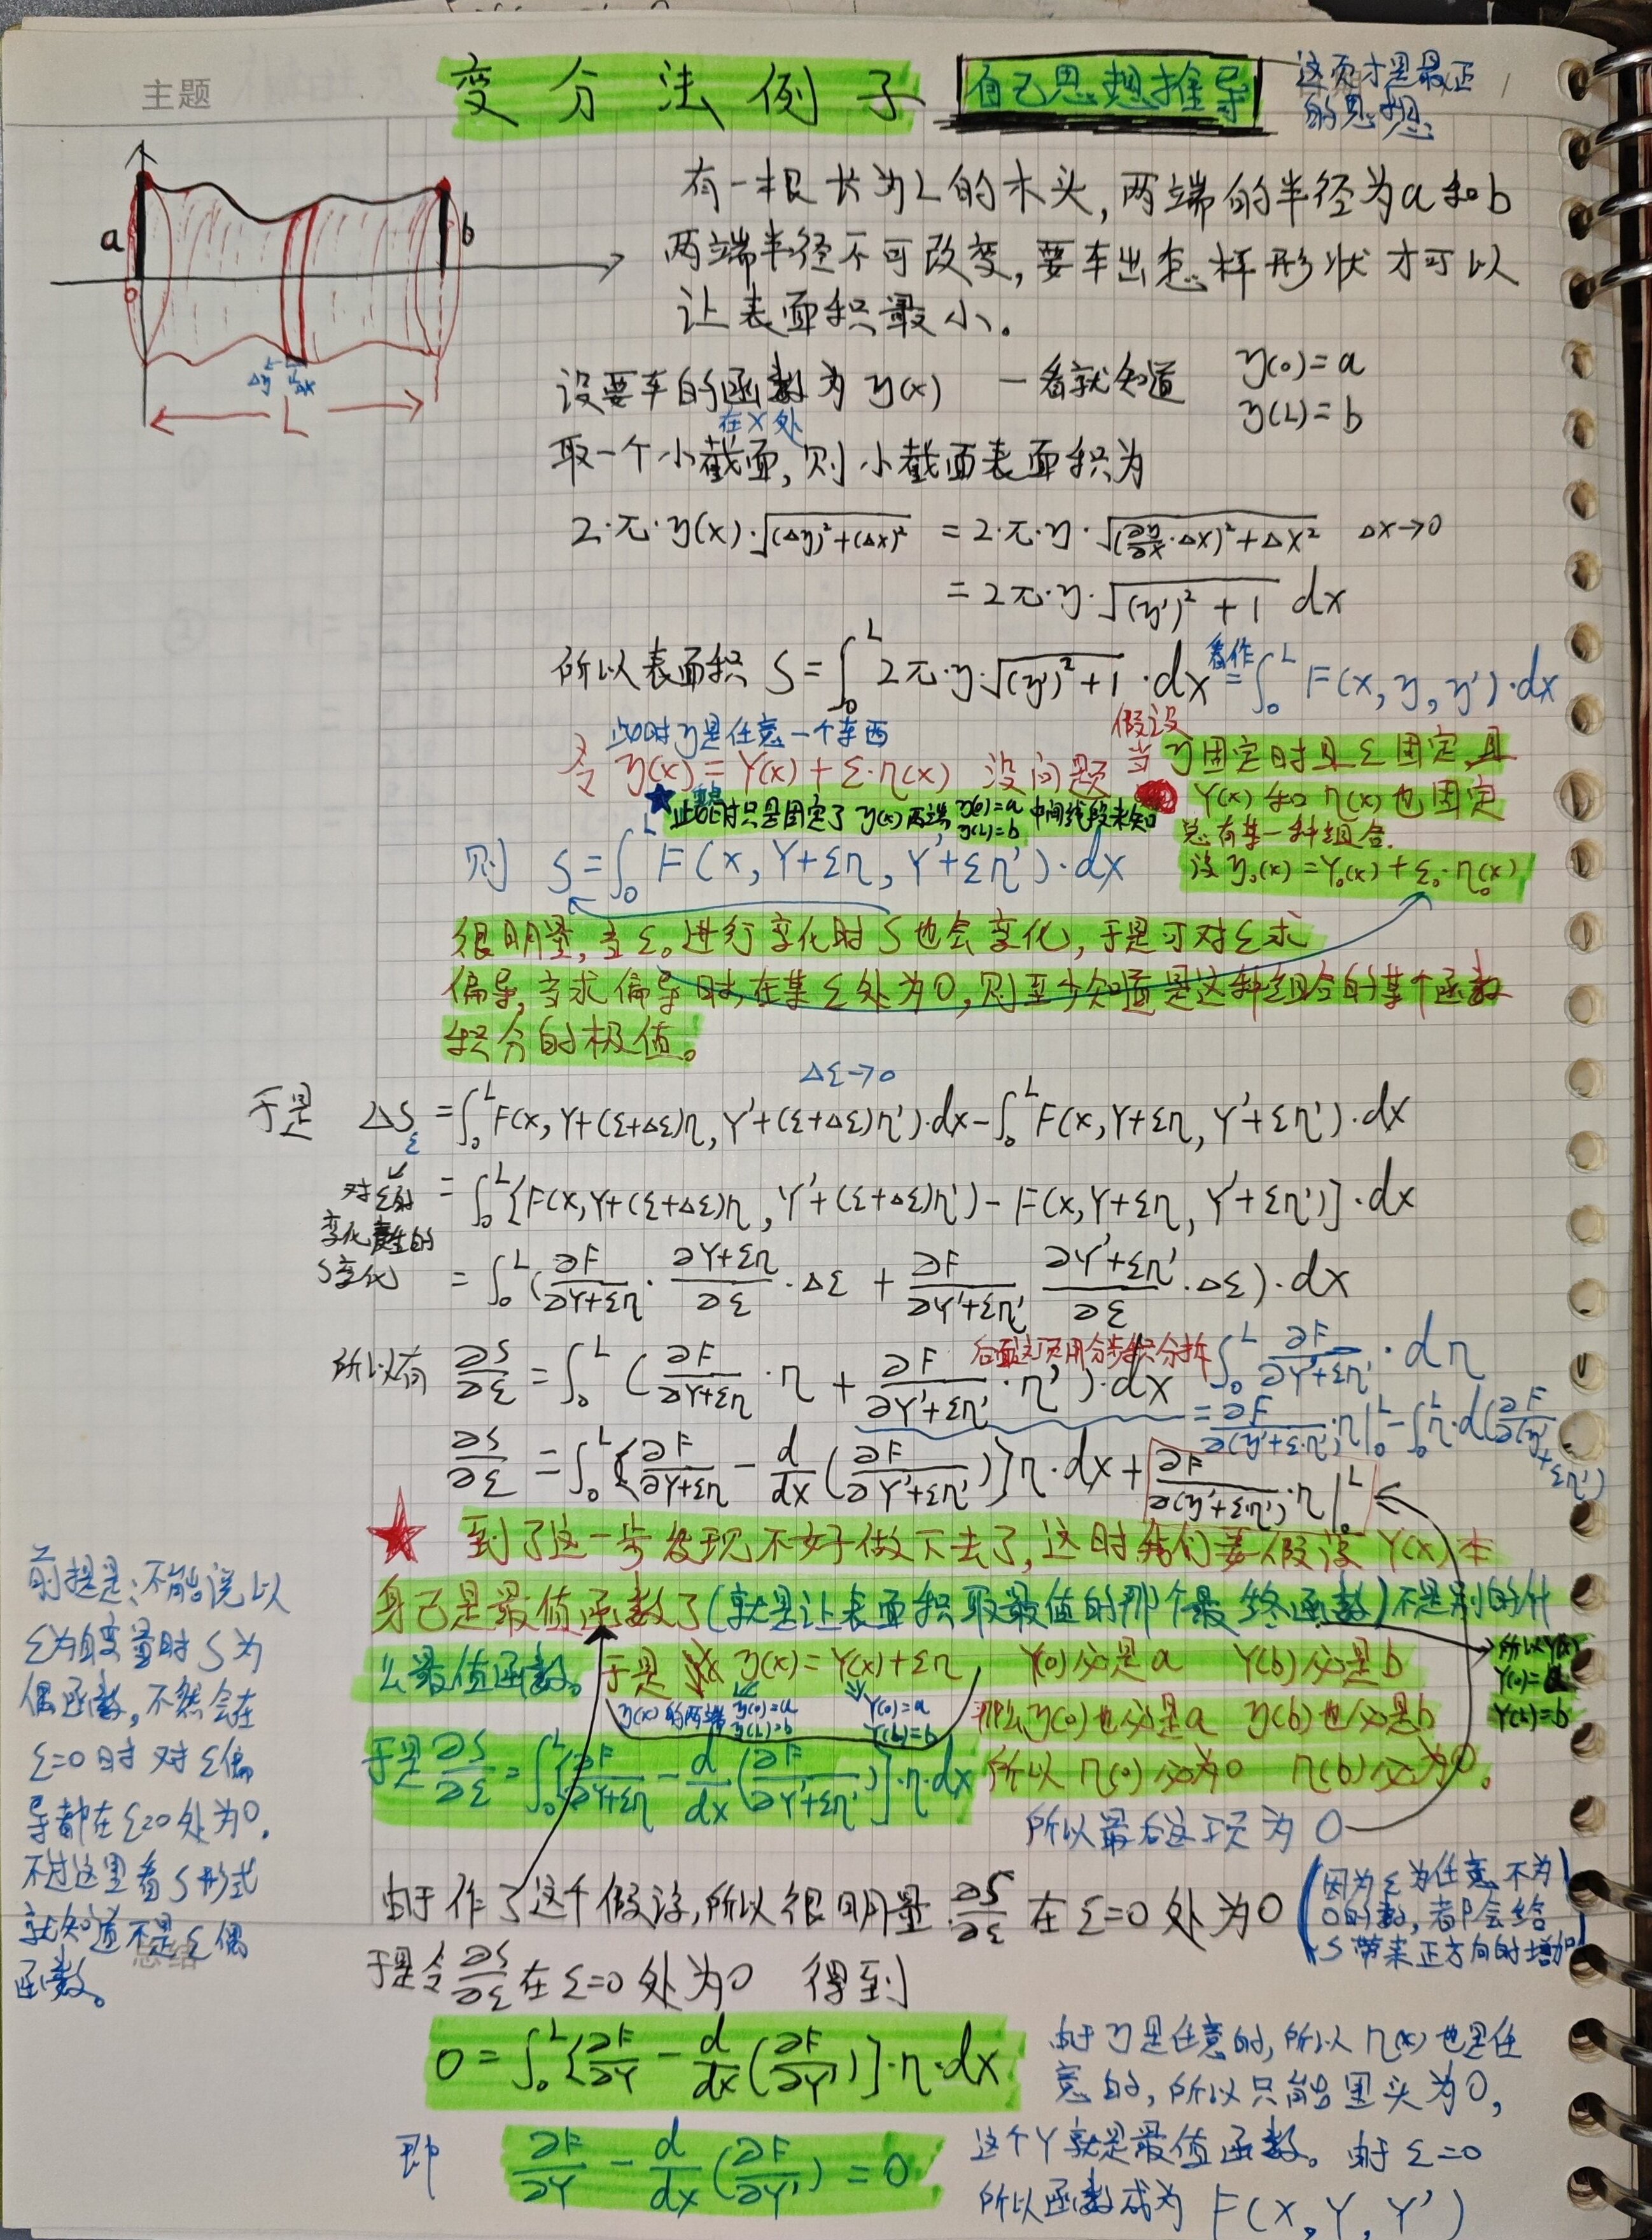 主题
变分法例子 自己思想推导
这页才是最正
的思想
a
b
0
Δy Δx
L
有一根长为L的木头,两端的半径为a和b
两端半径不可改变,要车出怎样形状才可以
让表面积最小。
设要车的函数为 y(x) 一看就知道 y(0)=a
y(L)=b
在X处
取一个小截面,则小截面表面积为
2·π·y(x)·√((Δy)²+(Δx)²) = 2·π·y·√((∂y/∂x·Δx)²+Δx²) Δx→0
= 2π·y·√((y')²+1) dx
所以表面积 S=∫₀ᴸ 2π·y·√((y')²+1)·dx 看作 =∫₀ᴸ F(x,y,y')·dx
此时y是任意一个东西
令 y(x)=Y(x)+Σ·η(x) 没问题
★此时只是固定了y(x)两端 y(0)=a y(L)=b 中间线段未知
假设
当y固定时且Σ固定,且
Y(x)和η(x)也固定
总有某一种组合.
设y₀(x)=Y₀(x)+Σ₀·η₀(x)
则 S=∫₀ᴸ F(x,Y+Ση,Y'+Ση')·dx
很明显,当Σ。进行变化时S也会变化,于是可对Σ求
偏导,当求偏导时,在某Σ处为0,则至少知道是这种组合的某个函数
积分的极值。
ΔΣ→0
于是 ΔS_Σ =∫₀ᴸF(x,Y+(Σ+ΔΣ)η,Y'+(Σ+ΔΣ)η')·dx-∫₀ᴸF(x,Y+Ση,Y'+Ση')·dx
对Σ的
变化产生的
S变化
=∫₀ᴸ{F(x,Y+(Σ+ΔΣ)η,Y'+(Σ+ΔΣ)η')-F(x,Y+Ση,Y'+Ση')]·dx
=∫₀ᴸ(∂F/∂Y+Ση·∂Y+Ση/∂Σ·ΔΣ+∂F/∂Y'+Ση' ∂Y'+Ση'/∂Σ·ΔΣ)·dx
所以有 ∂S/∂Σ=∫₀ᴸ(∂F/∂Y+Ση·η+∂F/∂Y'+Ση'·η')·dx
后面这项用分步积分拆
∫₀ᴸ ∂F/∂Y'+Ση'·dη
=∂F/∂(y'+Σ·η')·η|₀ᴸ-∫₀ᴸη·d(∂F/∂(y'+Ση')
∂S/∂Σ=∫₀ᴸ{∂F/∂Y+Ση-d/dx(∂F/∂Y'+Ση')]η·dx+∂F/∂(y'+Σ·η')·η|₀ᴸ
★到了这一步发现不好做下去了,这时我们要假设Y(x)本
身已是最值函数了(就是让表面积取最值的那个最终函数)不是别的什
么最值函数。于是 y(x)=Y(x)+Ση, Y(0)必是a Y(b)必是b
y(x)的两端 y(0)=a y(b)=b
Y(0)=a
Y(b)=b
那么y(0)也必是a y(b)也必是b
所以Y(x)
Y(0)=a
Y(b)=b
于是∂S/∂Σ=∫₀ᴸ{∂F/∂Y+Ση-d/dx(∂F/∂Y'+Ση')]·η·dx 所以η(0)必为0 η(b)必为0。
所以最后这项为0
前提是:不能说以
Σ为自变量时S为
偶函数,不然会在
Σ=0时对Σ偏
导都在Σ=0处为0,
不过这里看S形式
就知道不是Σ偶
函数。
总结
由于作了这个假设,所以很明显∂S/∂Σ在Σ=0处为0
(因为Σ为任意不为
0的数,都会给
S带来正方向的增加)
于是令∂S/∂Σ在Σ=0处为0 得到
0=∫₀ᴸ{∂F/∂Y-d/dx(∂F/∂Y')]·η·dx
由于y是任意的,所以η(x)也是任
意的,所以只能里头为0,
即 ∂F/∂Y-d/dx(∂F/∂Y')=0
这个Y就是最值函数。由于Σ=0
所以函数成为F(X,Y,Y')